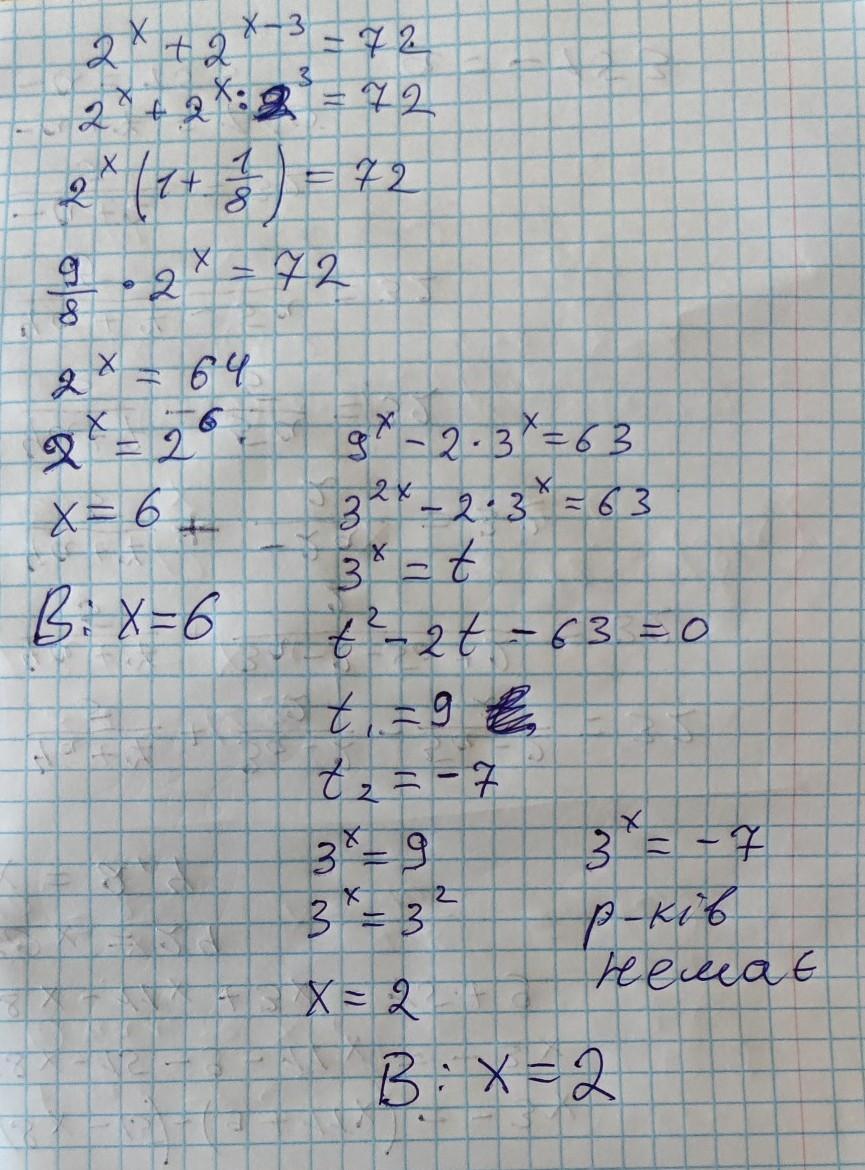 2^x + 2^(x-3) = 72
2^x + 2^x : 2^3 = 72
2^x (1 + 1/8) = 72
9/8 · 2^x = 72
2^x = 64
2^x = 2^6
x = 6
В: x = 6
9^x - 2 · 3^x = 63
3^(2x) - 2 · 3^x = 63
3^x = t
t^2 - 2t - 63 = 0
t₁ = 9
t₂ = -7
3^x = 9
3^x = 3^2
x = 2
3^x = -7
р-ків
немає
В: x = 2